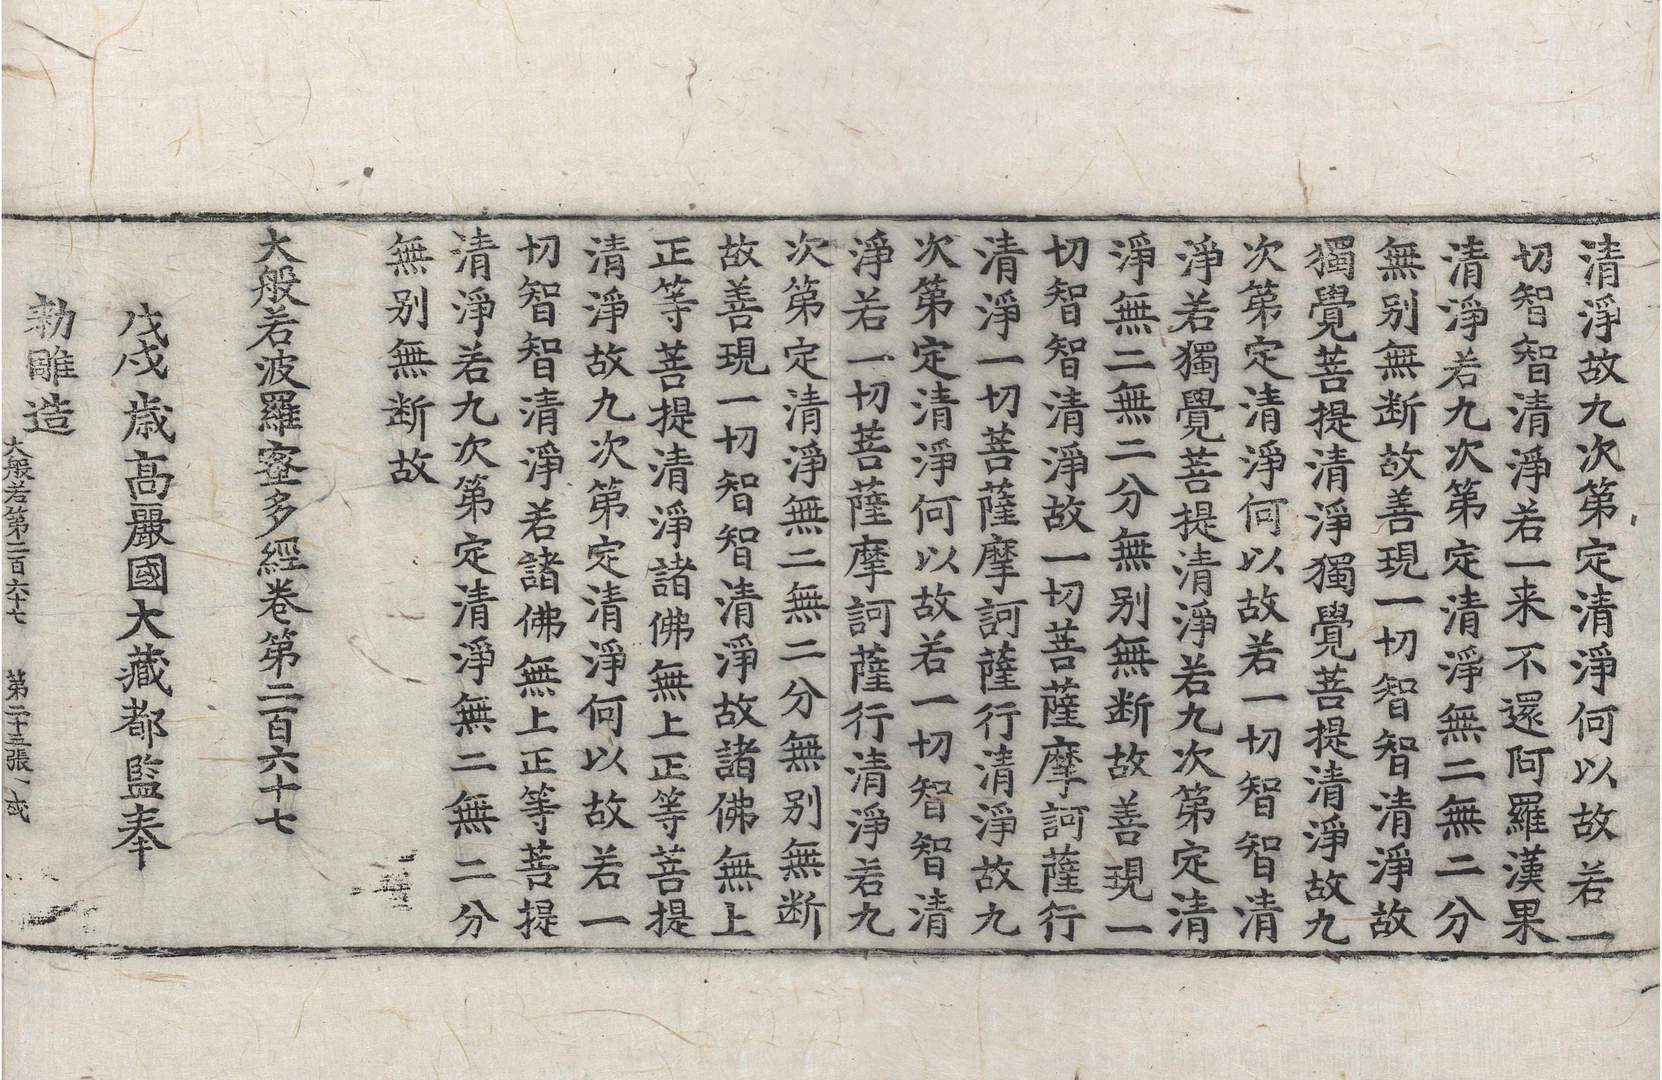 清淨故九次第定清淨何以故若一
切智智清淨若一来不還阿羅漢果
清淨若九次第定清淨無二無二分
無別無断故善現一切智智清淨故
獨覺菩提清淨獨覺菩提清淨故九
次第定清淨何以故若一切智智清
淨若獨覺菩提清淨若九次第定清
淨無二無二分無別無断故善現一
切智智清淨故一切菩薩摩訶薩行
清淨一切菩薩摩訶薩行清淨故九
次第定清淨何以故若一切智智清
淨若一切菩薩摩訶薩行清淨若九
次第定清淨無二無二分無別無断
故善現一切智智清淨故諸佛無上
正等菩提清淨諸佛無上正等菩提
清淨故九次第定清淨何以故若一
切智智清淨若諸佛無上正等菩提
清淨若九次第定清淨無二無二分
無別無断故
大般若波羅蜜多經卷第二百六十七
戊戌歲高麗國大藏都監奉
勑雕造
大般若第二百六十七 第二十三張